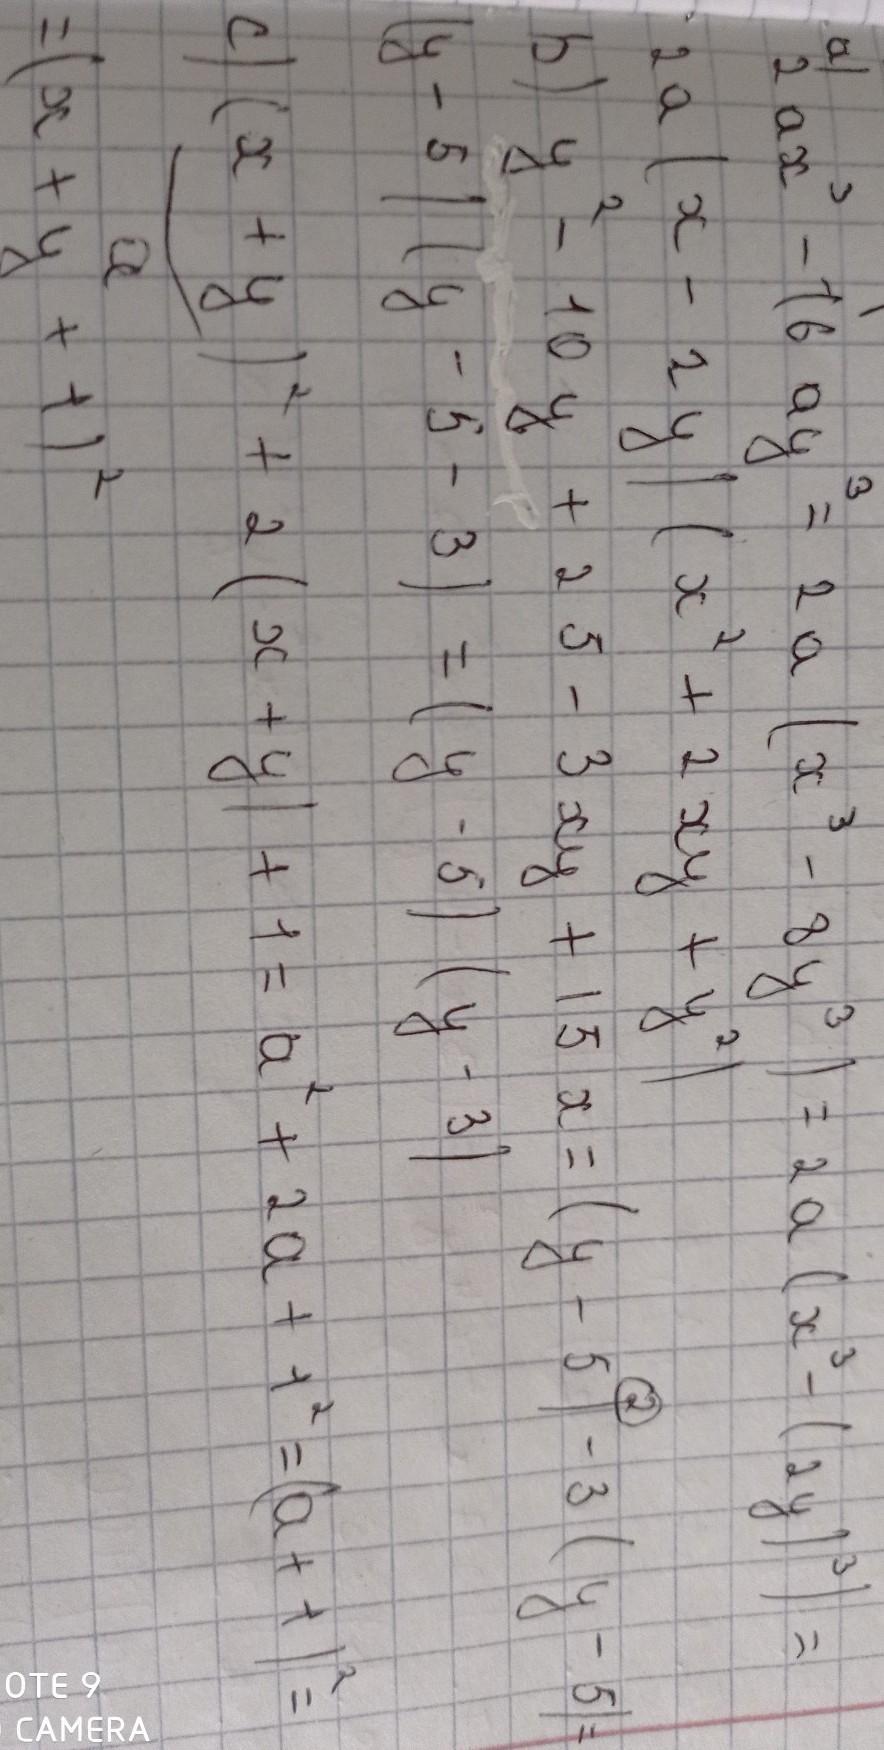 a)
2ax³ - 16ay³ = 2a(x³ - 8y³) = 2a(x³ - (2y)³) =
2a(x - 2y)(x² + 2xy + y²)
b) y² - 10y + 25 - 3xy + 15x = (y - 5)² - 3(y - 5) =
(y - 5)(y - 5 - 3) = (y - 5)(y - 3)
c) (x + y)² + 2(x + y) + 1 = a² + 2a + 1² = (a + 1)² =
a
= (x + y + 1)²
OTE 9
CAMERA